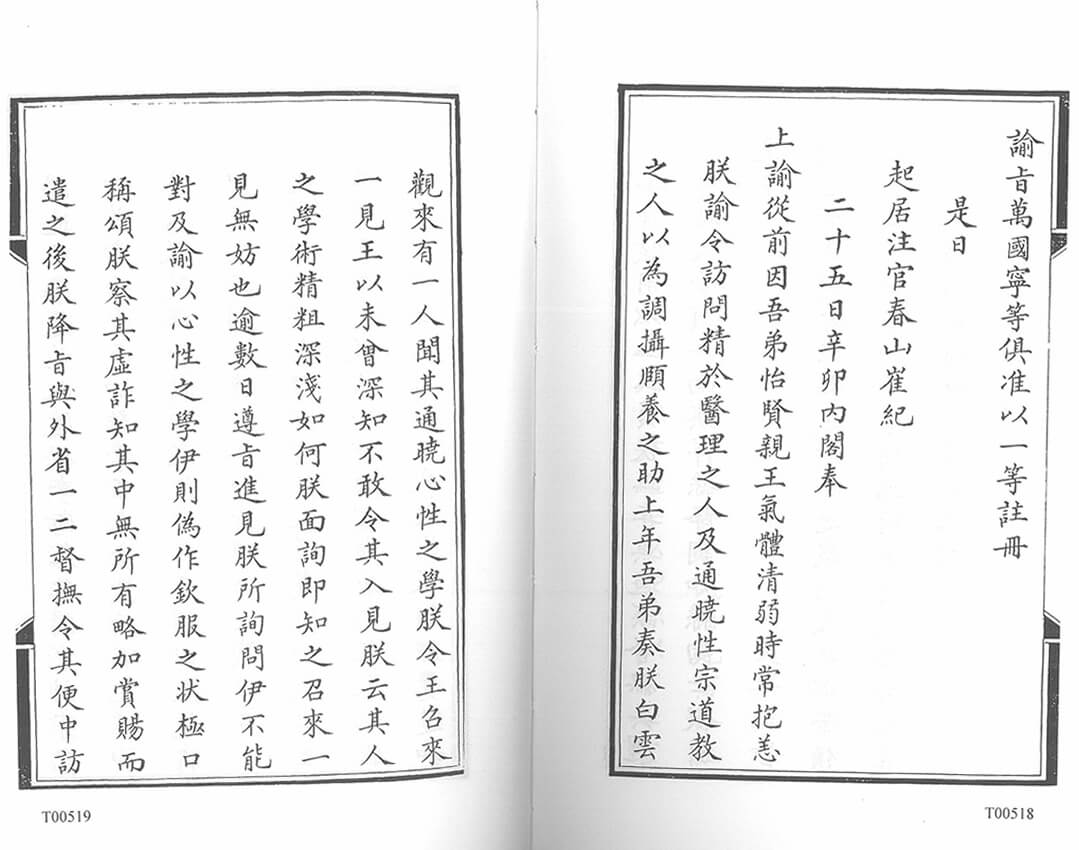 諭旨萬國寧等俱准以一等註冊
是日
起居注官春山崔紀
二十五日辛卯內閣奉
上諭從前因吾弟怡賢親王氣體清弱時常抱恙
朕諭令訪問精於醫理之人及通曉性宗道教
之人以為調攝頤養之助上年吾弟奏朕白雲
T00518
觀來有一人聞其通曉心性之學朕令王召來
一見王以未曾深知不敢令其入見朕云其人
之學術精粗深淺如何朕面詢即知之召來一
見無妨也逾數日遵旨進見朕所詢問伊不能
對及諭以心性之學伊則偽作欽服之状極口
稱頌朕察其虛詐知其中無所有略加賞賜而
遣之後朕降旨與外省一二督撫令其便中訪
T00519